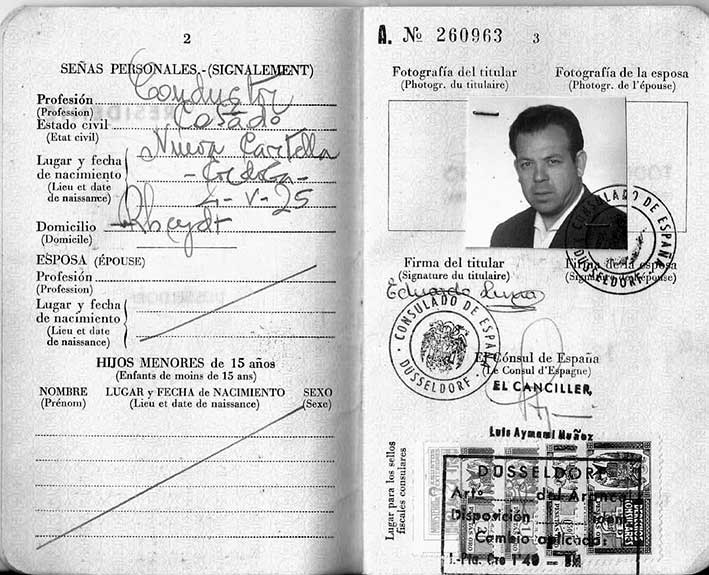 2
SEÑAS PERSONALES.-(SIGNALEMENT)
Profesión Conductor
(Profession)
Estado civil Casado
(Etat civil)
Lugar y fecha Nueva Cartella
de nacimiento - Cordoba -
(Lieu et date 4-V-25
de naissance)
Domicilio Rheydt
(Domicile)
ESPOSA (ÉPOUSE)
Profesión
(Profession)
Lugar y fecha
de nacimiento
(Lieu et date
de naissance)
HIJOS MENORES de 15 años
(Enfants de moins de 15 ans)
NOMBRE LUGAR y FECHA de NACIMIENTO SEXO
(Prénom) (Lieu et date de naissance) (Sexe)
A. Nº 260963 3
Fotografía del titular Fotografía de la esposa
(Photogr. du titulaire) (Photogr. de l'épouse)
CONSULADO DE ESPAÑA
DÜSSELDORF
Firma del titular Firma de la esposa
(Signature du titulaire) (Signature de l'épouse)
Eduardo
CONSULADO DE ESPAÑA
DÜSSELDORF
El Cónsul de España
(Le Consul d'Espagne)
EL CANCILLER,
Luis Aymami Muñoz
Lugar para los sellos
fiscales consulares
DÜSSELDORF
Artº del Arancel
Disposición
Cambio aplicado: